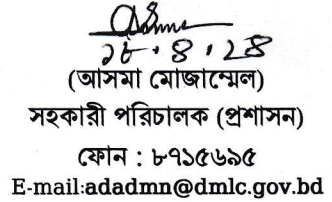 ১৮.৪.২৪
(আসমা মোজাম্মেল)
সহকারী পরিচালক (প্রশাসন)
ফোন : ৮৭১৫৬৯৫
E-mail:adadmn@dmlc.gov.bd